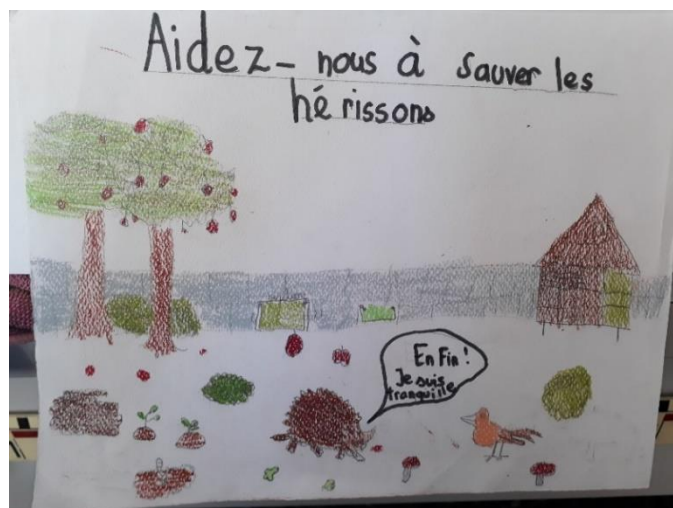 Aidez-nous à sauver les
hérissons
En Fin !
Je suis
tranquille